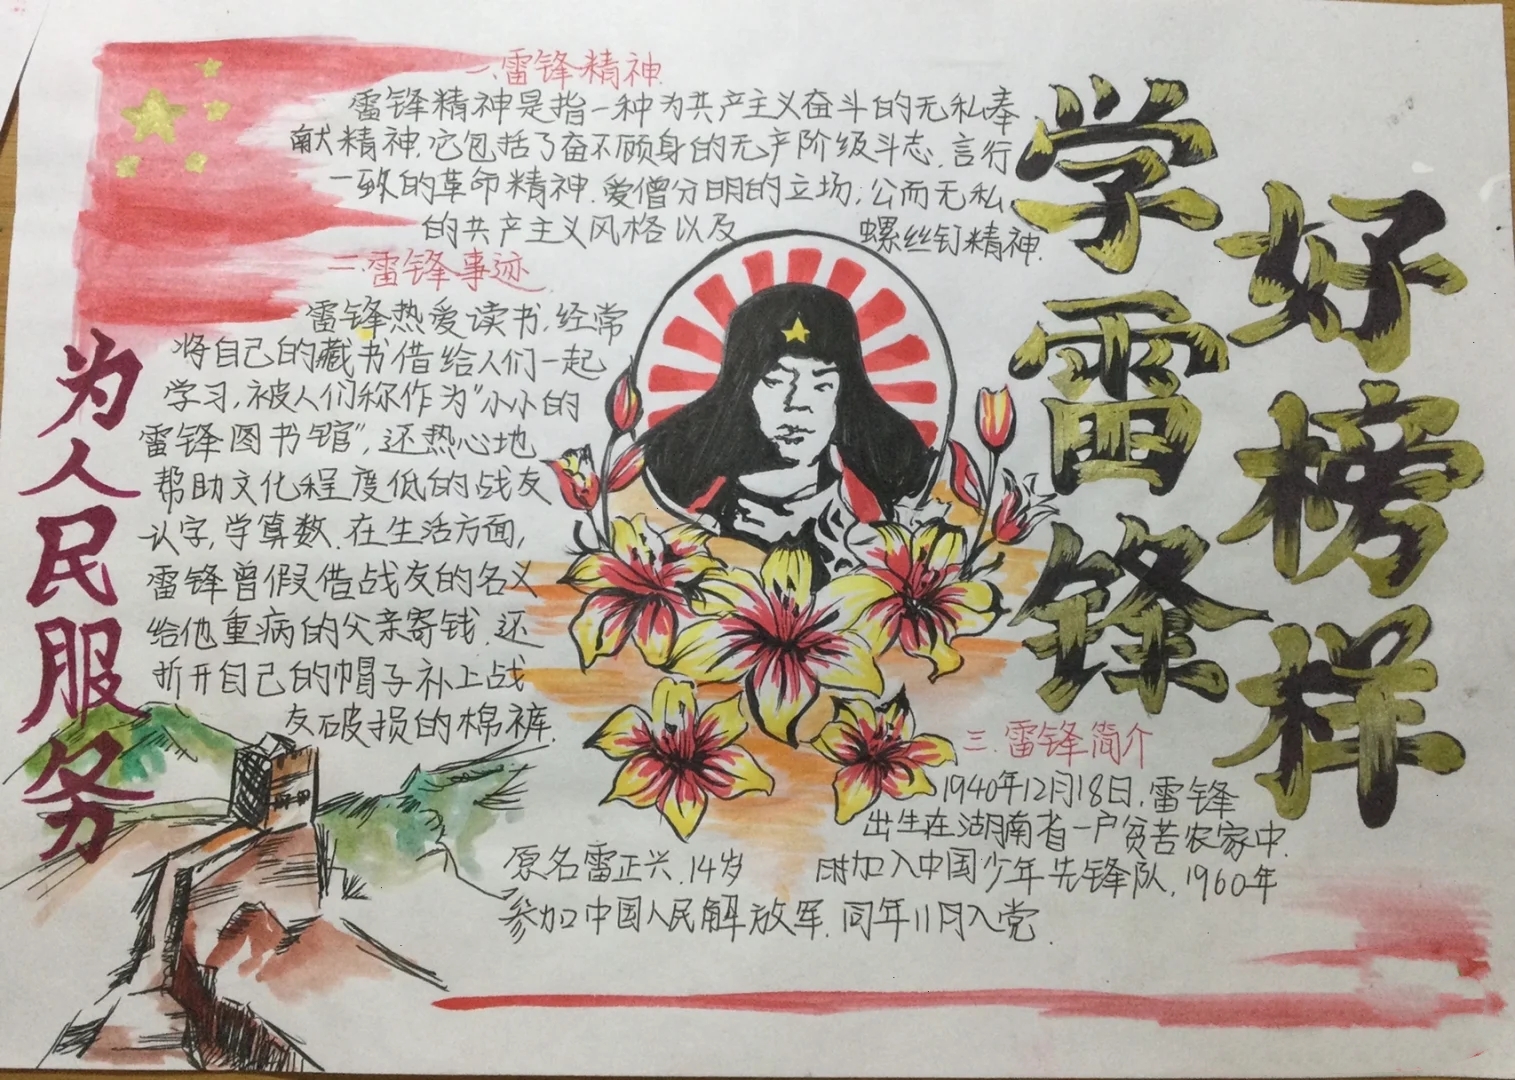 学雷锋
好榜样
为人民服务
一.雷锋精神
雷锋精神是指一种为共产主义奋斗的无私奉
献精神.它包括了奋不顾身的无产阶级斗志.言行
一致的革命精神.爱僧分明的立场;公而无私
的共产主义风格以及 螺丝钉精神.
二.雷锋事迹
雷锋热爱读书,经常
将自己的藏书借给人们一起
学习,被人们称作为"小小的
雷锋图书馆",还热心地
帮助文化程度低的战友
认字,学算数.在生活方面,
雷锋曾假借战友的名义
给他重病的父亲寄钱.还
折开自己的帽子补上战
友破损的棉裤.
三.雷锋简介
1940年12月18日,雷锋
出生在湖南省一户贫苦农家中.
原名雷正兴.14岁 时加入中国少年先锋队,1960年
参加中国人民解放军.同年11月入党.